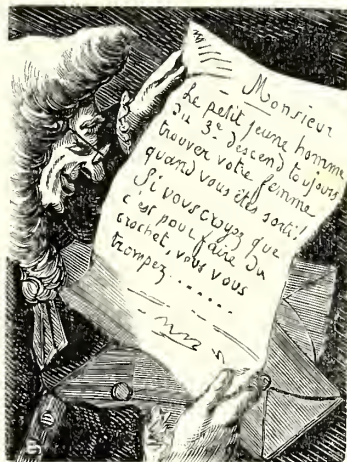 Monsieur
Le petit jeune homme
du 3e descend toujours
trouver votre femme
quand vous êtes sorti!
Si vous croyez que
c'est pour faire du
crochet, vous vous
trompez......